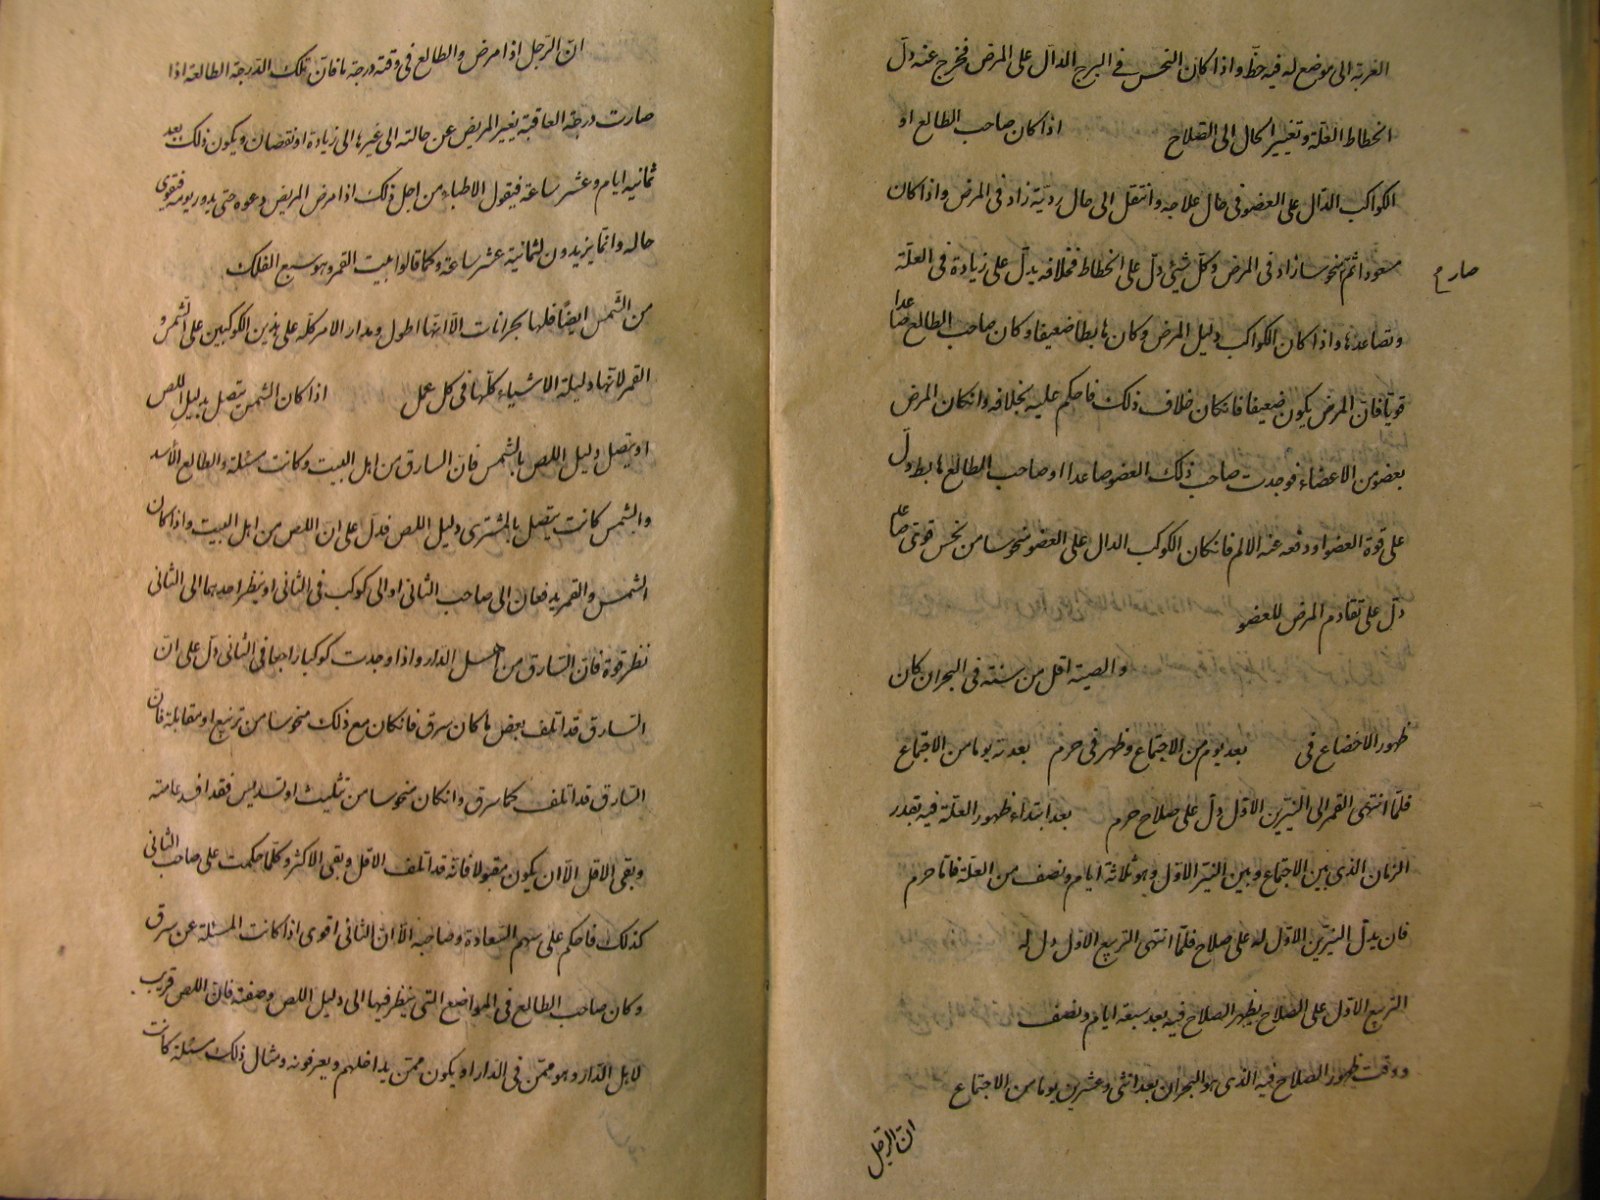 الغربة الى موضع له فيه حظ واذا كان النحس فى البرج الدال على المرض فخرج عنه دلّ
انحطاط العلّة وتغيير الحال الى الصّلاح اذا كان صاحب الطالع او
الكواكب الدّال على العضو فى حال علاجه وانتقل الى حال رديّة زاد فى المرض واذا كان
مسعودا ثمّ نحوسا زاد فى المرض وكلّ شئ دلّ على انحطاط فخلافه يدلّ على زيادة فى العلّة
صار م
وتصاعدها واذا كان الكواكب دليل المرض وكان هابطا ضعيفا وكان صاحب الطالع صاعدا
قويّا فانّ المرض يكون ضعيفا فانكان خلاف ذلك فاحكم عليه بخلافه وانكان المرض
بعضو من الاعضاء فوجدت صاحب ذلك العضو صاعدا او صاحب الطالع هابط دلّ
على قوة العضو او دفعه عنه الالم فانكان الكوكب الدال على العضو منحوسا من نحس قوى صاعد
دلّ على تقادم المرض للعضو
والصية اقل من سنة فى البحران كان
ظهور الاخضاع فى بعد يوم من الاجتماع وظهر فى حرم بعد ته يوما من الاجتماع
فلمّا انتهى القمر الى النيّرين الاوّل دلّ على صلاح حرم بعد ابتداء ظهور العلّة فيه بقدر
الزمان الذى بين الاجتماع وبين النيّر الاوّل وهو ثلاثة ايام ونصف من العلّة فامّا حرم
فان يدلّ النيرّين الاوّل له على صلاح فلمّا انتهى التربيع الاوّل دل له
التربيع الاوّل على الصّلاح يظهر الصلاح فيه بعد سبعة ايام ونصف
ووقت ظهور الصلاح فيه الذى هو البحران بعد اثنى وعشرين يوما من الاجتماع
انّ الرجل
انّ الرّجل اذا مرض والطالع فى وقته درجة ما فانّ تلك الدّرجة الطالعة اذا
صارت درجة العاقبة يغيير المريض عن حالته الى غيرها الى زيادة او نقصان ويكون ذلك بعد
ثمانية ايام وعشر ساعة فيقول الاطباء من اجل ذلك اذا مرض المريض دعوه حتى يدور يومه فتقوى
حاله وانّما يزيدون لثمانية عشر ساعة وكما قالوا بيت القمر وهو سبع الفلك
من الشّمس ايضًا فلها بحرانات الاّ انّها اطول ومدار الامر كلّه على هذين الكوكبين على الشّمس و
القمر لانّها دليلة الاشياء كلّها فى كل عمل اذا كان الشمس يتصل بدليل اللص
او يتصل دليل اللص بالشمس فان السارق من اهل البيت وكانت مسئلة والطالع الأسد
والشمس كانت يتصل بالمشترى دليل اللص فدلّ على ان اللص من اهل البيت واذا كان
الشمس والقمر يدفعان الى صاحب الثانى او الى كوكب فى الثانى او ينظر احدهما الى الثانى
نظر قوة فانّ السّارق من اهل الدّار واذا وجدت كوكبا راجعا فى الثانى دلّ على انّ
السّارق قد اتلف بعض ما كان سرق فانكان مع ذلك منحوسا من تربيع او مقابلة فانّ
السّارق قد اتلف كما سرق وانكان منحوسا من تثليث او تسديس فقد افسد عامته
وبقى الاقل الاّ ان يكون مقبولا فانّه قد اتلف الاقل وبقى الاكثر وكلّما حكمت على صاحب الثانى
كذلك فاحكم على سهم السّعادة وصاحبه الاّ انّ الثانى اقوى اذا كانت المسئلة عن سرق
وكان صاحب الطالع فى المواضع التى ينظر فيها الى دليل اللص وصفته فانّ اللص قريب
لاهل الدّار وهو ممّن فى الدّار او يكون ممّن يداخلهم ويعرفونه ومثال ذلك مسئلة كانت